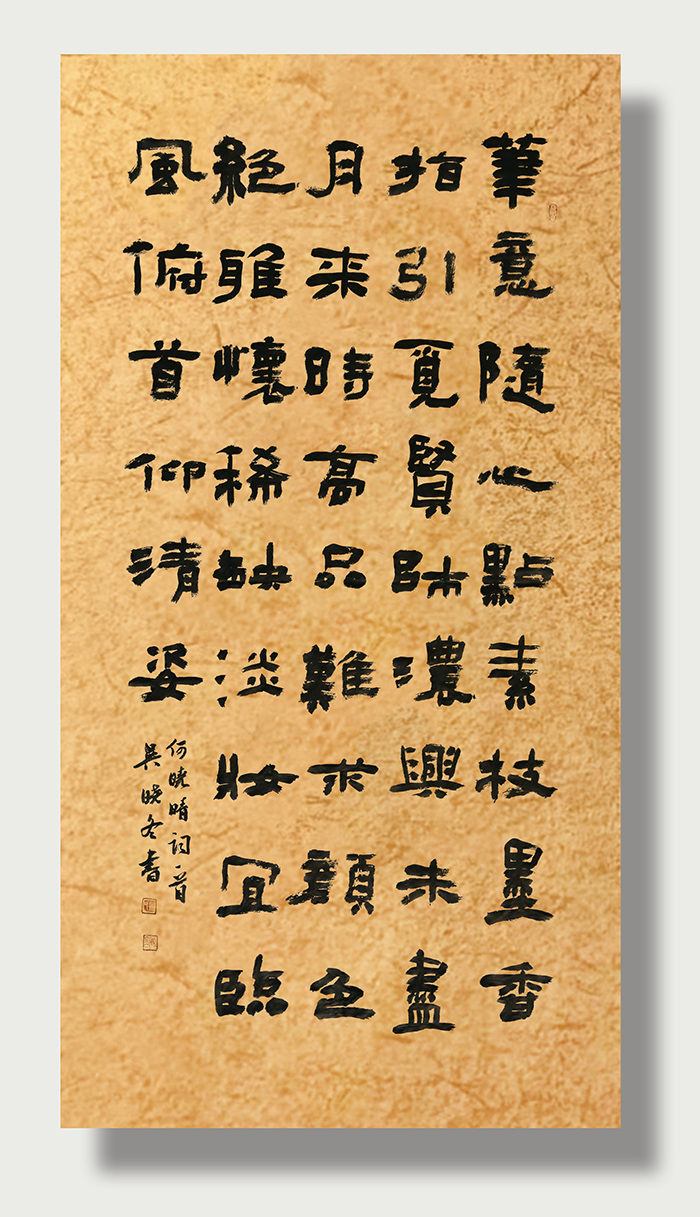 筆意隨心點素枝墨香
指引覓賢師濃興未盡
月来時高品難求顏色
絕雅懷稀缺淡妝宜臨
風俯首仰清姿
何曉晴詞一首
吳曉冬書